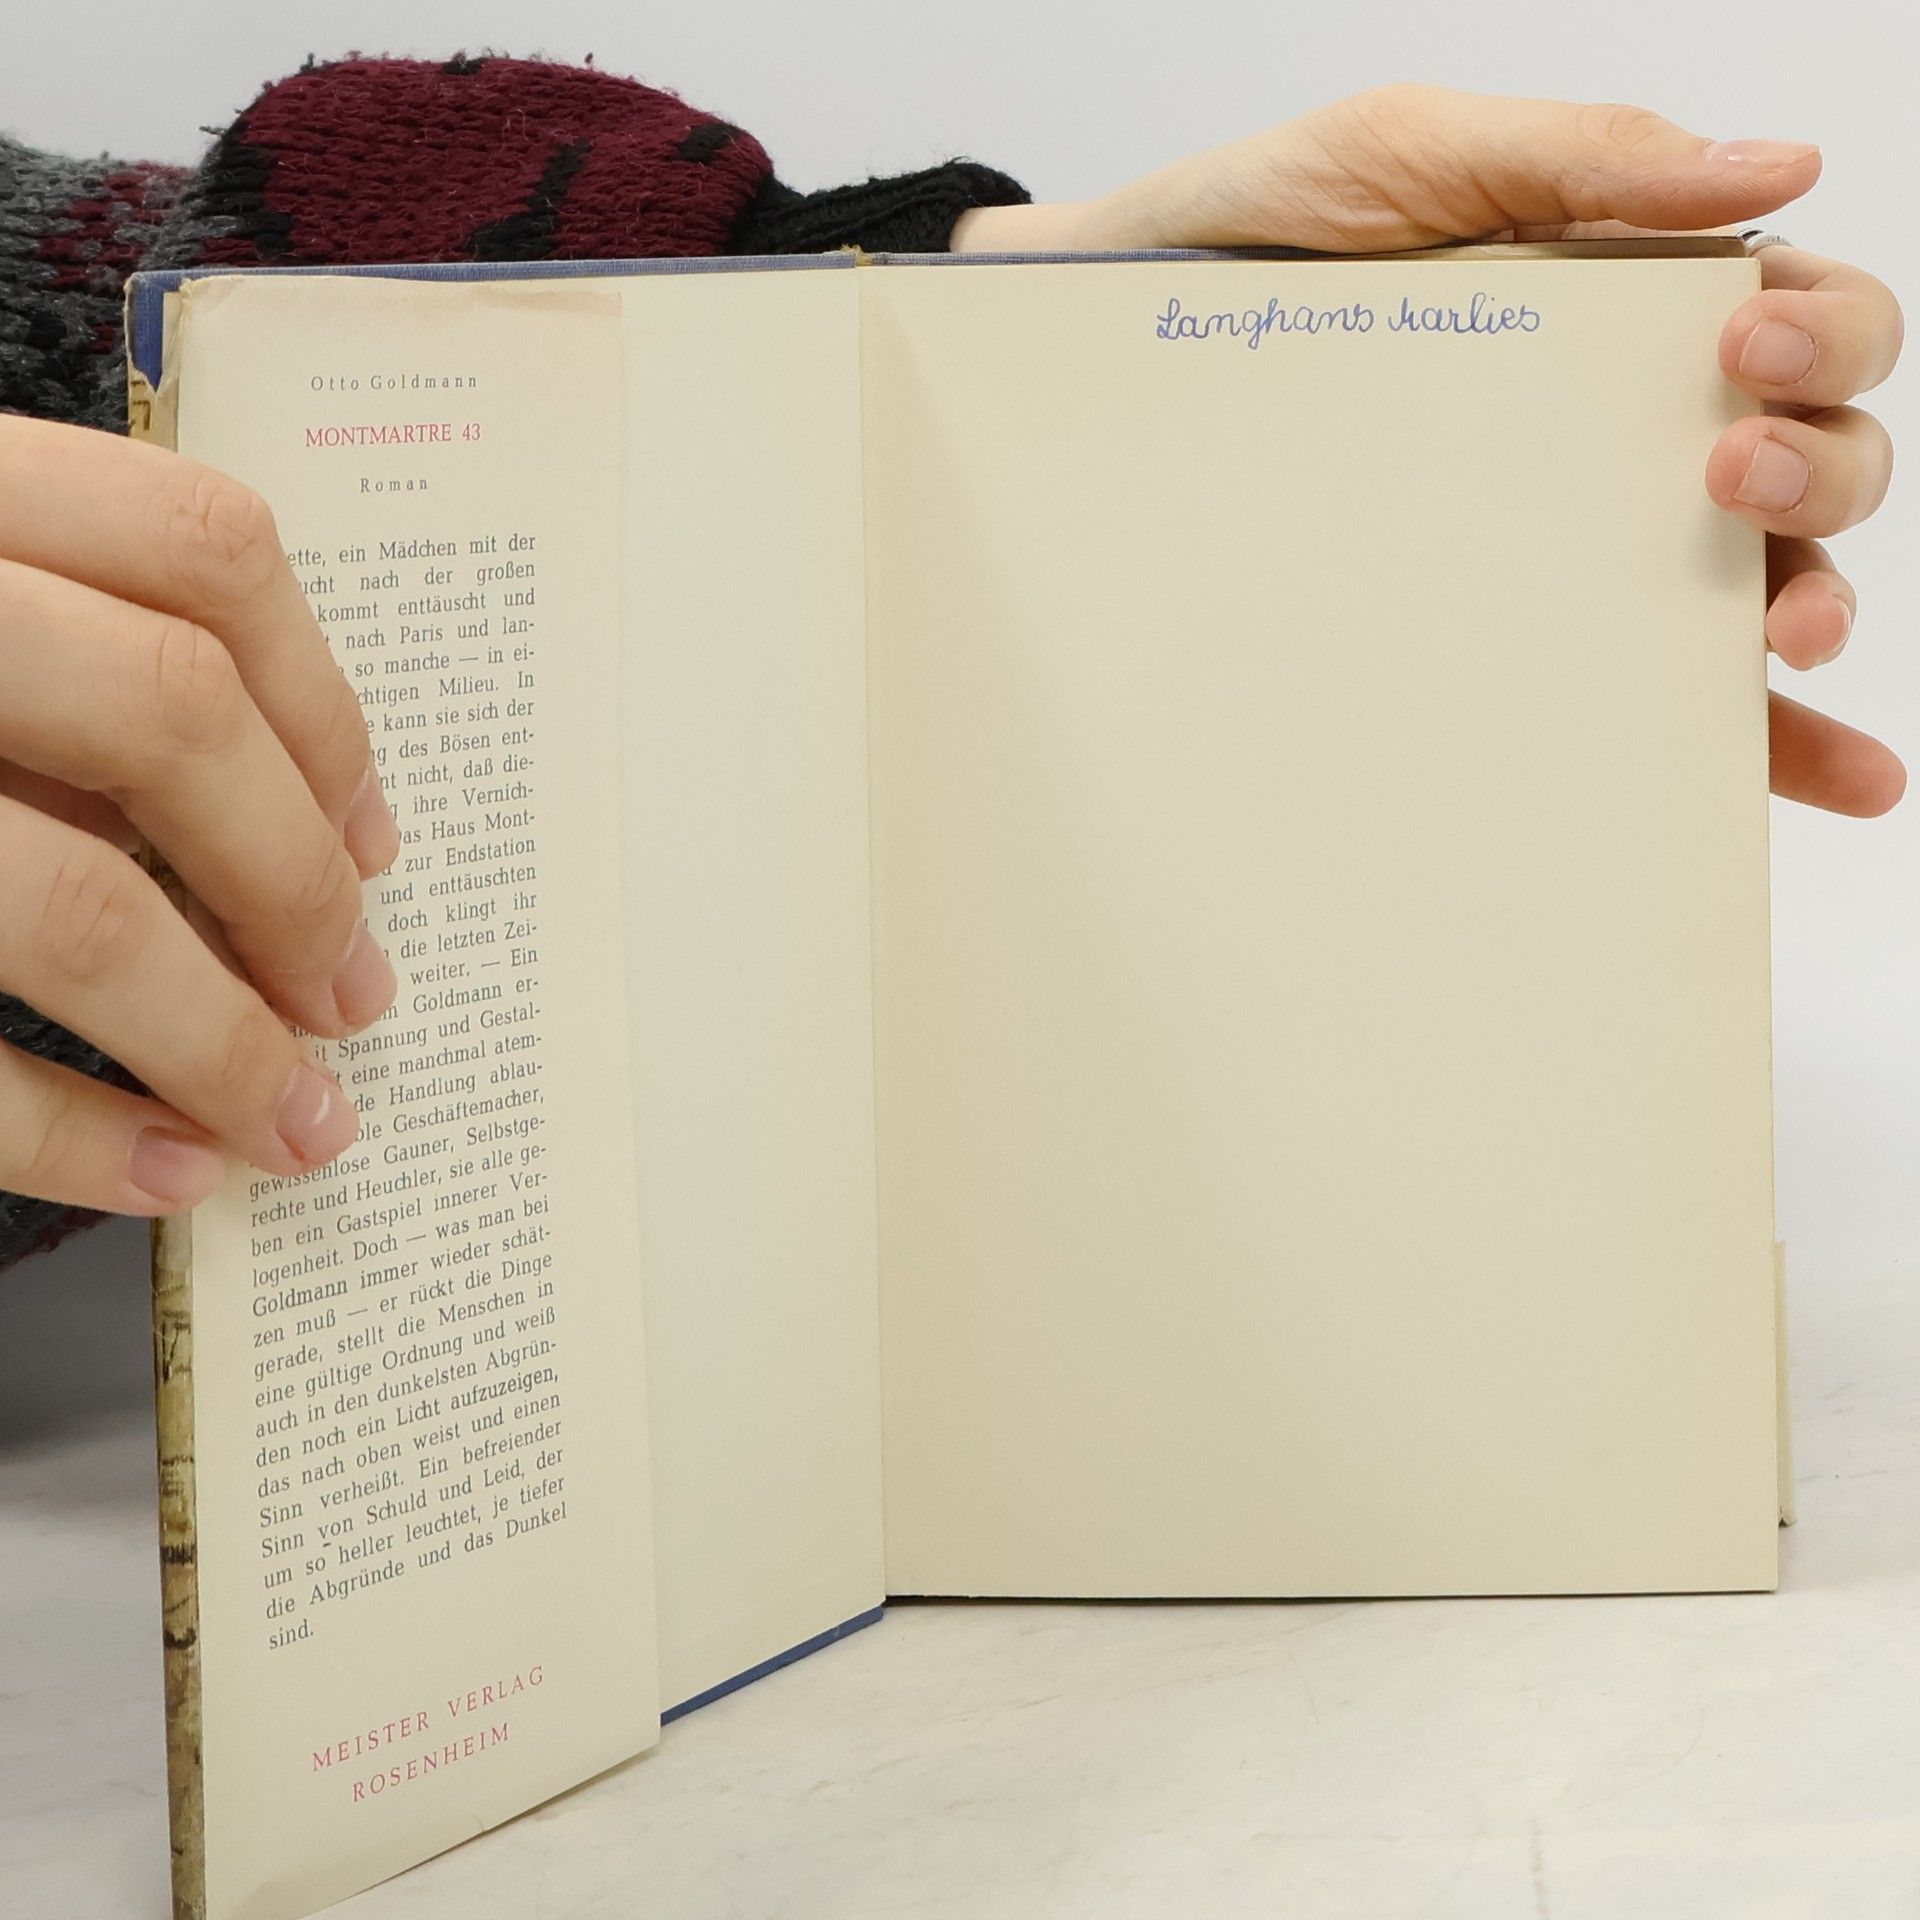 Otto Goldmann
MONTMARTRE 43
Roman
ein Mädchen mit der
nach der großen
kommt enttäuscht und
nach Paris und lan-
so manche — in ei-
Milieu. In
kann sie sich der
des Bösen ent-
nicht, daß die-
ihre Vernich-
Das Haus Mont-
zur Endstation
und enttäuschten
doch klingt ihr
die letzten Zei-
weiter. — Ein
Goldmann er-
Spannung und Gestal-
eine manchmal atem-
Handlung ablau-
Geschäftemacher,
gewissenlose Gauner, Selbstge-
rechte und Heuchler, sie alle ge-
ben ein Gastspiel innerer Ver-
logenheit. Doch — was man bei
Goldmann immer wieder schät-
zen muß — er rückt die Dinge
gerade, stellt die Menschen in
eine gültige Ordnung und weiß
auch in den dunkelsten Abgrün-
den noch ein Licht aufzuzeigen,
das nach oben weist und einen
Sinn verheißt. Ein befreiender
Sinn von Schuld und Leid, der
um so heller leuchtet, je tiefer
die Abgründe und das Dunkel
sind.
MEISTER VERLAG
ROSENHEIM
Langhans Marlies